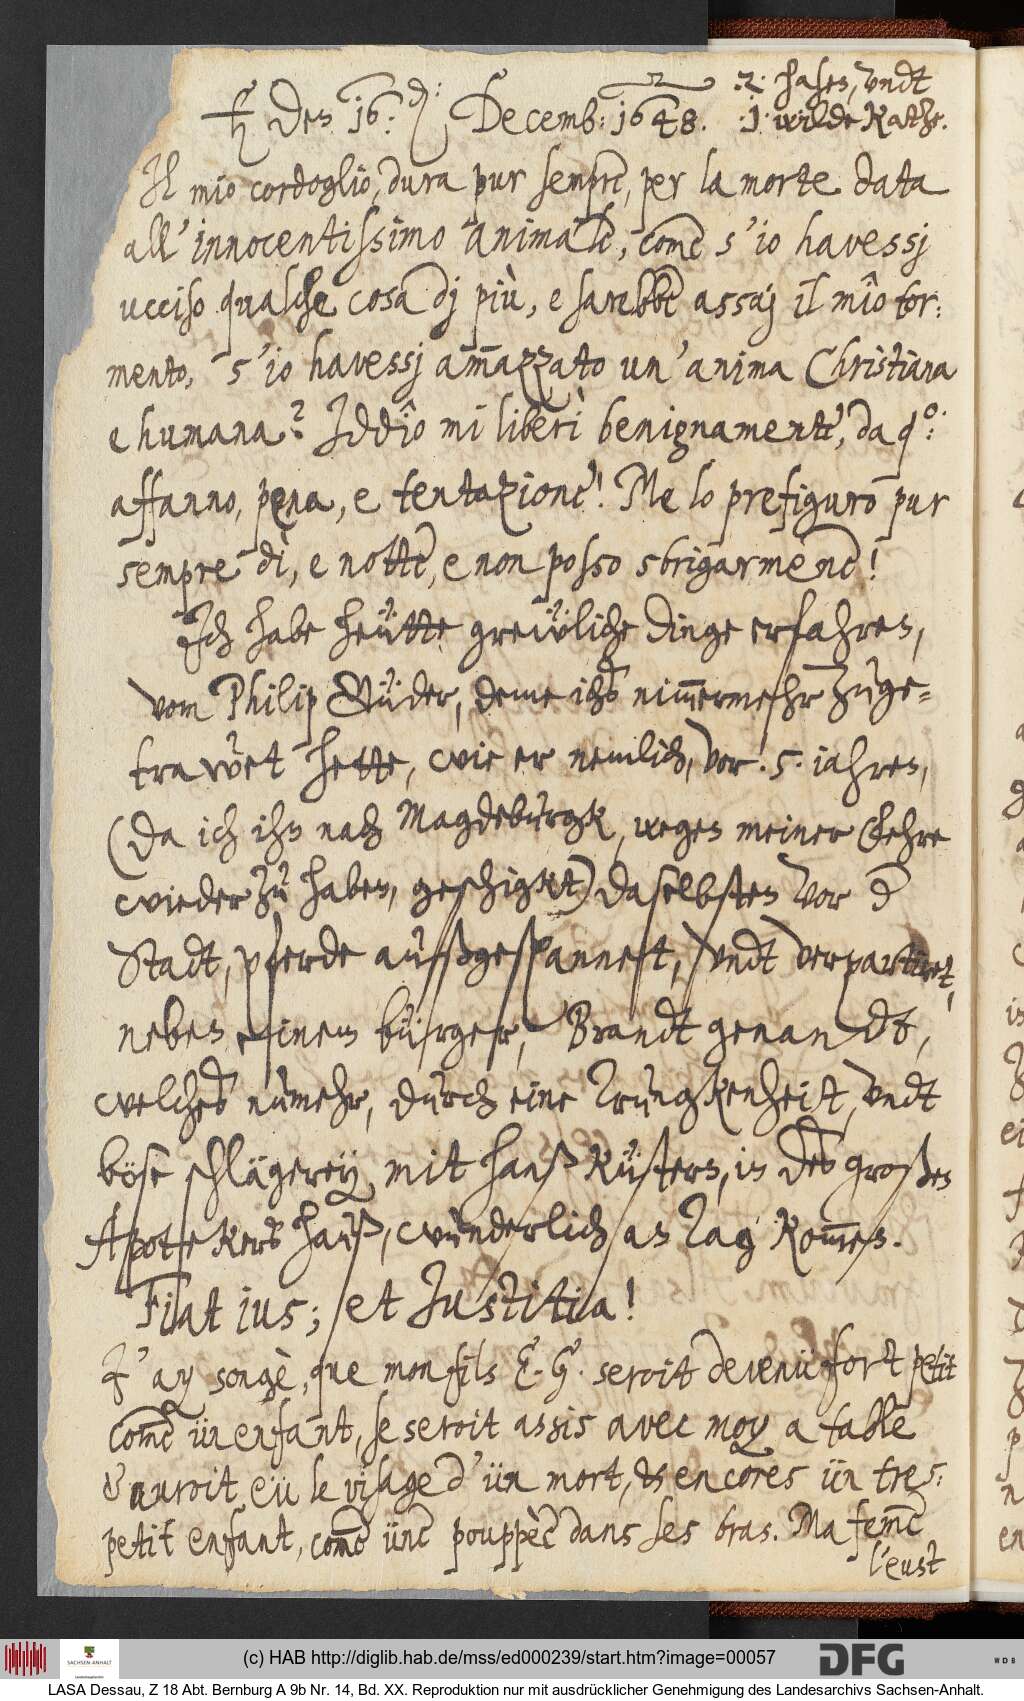 2. hasen, undt
♄ den 16. Decemb: 1648. 1 wilde Katze.
Il mio cordoglio, dura pur sempre, per la morte data
all' innocentissimo animale, come s'io havessj
ucciso qualche cosa dj più, e sarebbe assaj il mio tor:
mento, s'io havessj amazzato un'anima Christiana
e humana? Iddîo mi liberi benignamente, da q.o:
affanno, pena, e tentazione! Me lo prefiguro pur
sempre dì, e notte, e non posso sbrigarmene!
Ich habe heütte grewliche dinge erfahren,
vom Philip Güder, deme ichs nim̅ermehr zuge=
trawet hette, wie er nemlich, vor .5. iahren,
(da ich ihn nach Magdeburgk, wegen meiner Gehre
wieder zu haben, geschigkt) daselbsten vor d
Stadt, pferde außgespannet, undt verpartiret,
neben einem bürger, Brandt genandt,
welches numehr, durch eine Trungkenheitt, undt
böse schlägerey, mit Hanß Küstern, in des großen
Apotekers hauß, wunderlich an Tag kom̅en.
Fiat ius; et Justitia!
J'ay songè, que mon fils E. G. seroit devenü fort petit
com̅e ün enfant, se seroit assis avec moy a table
& auroit eü le visage d'ün mort, & encores ün tres:
petit enfant, com̅e üne pouppèe dans ses bras. Ma fem̅e
l'eust
(c) HAB http://diglib.hab.de/mss/ed000239/start.htm?image=00057
SACHSEN-ANHALT
DFG
WDB
LASA Dessau, Z 18 Abt. Bernburg A 9b Nr. 14, Bd. XX. Reproduktion nur mit ausdrücklicher Genehmigung des Landesarchivs Sachsen-Anhalt.